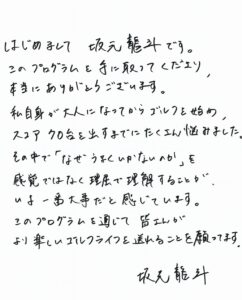 はじめまして 坂元龍斗です。
このプログラムを手に取ってくださり、
本当にありがとうございます。
私自身が大人になってからゴルフを始め、
スコア90台を出すまでにたくさん悩みました。
その中で「なぜうまくいかないのか」を
感覚ではなく理屈で理解することが、
いま一番大事だと感じています。
このプログラムを通じて皆さんが
より楽しいゴルフライフを送れることを願ってます。
坂元龍斗